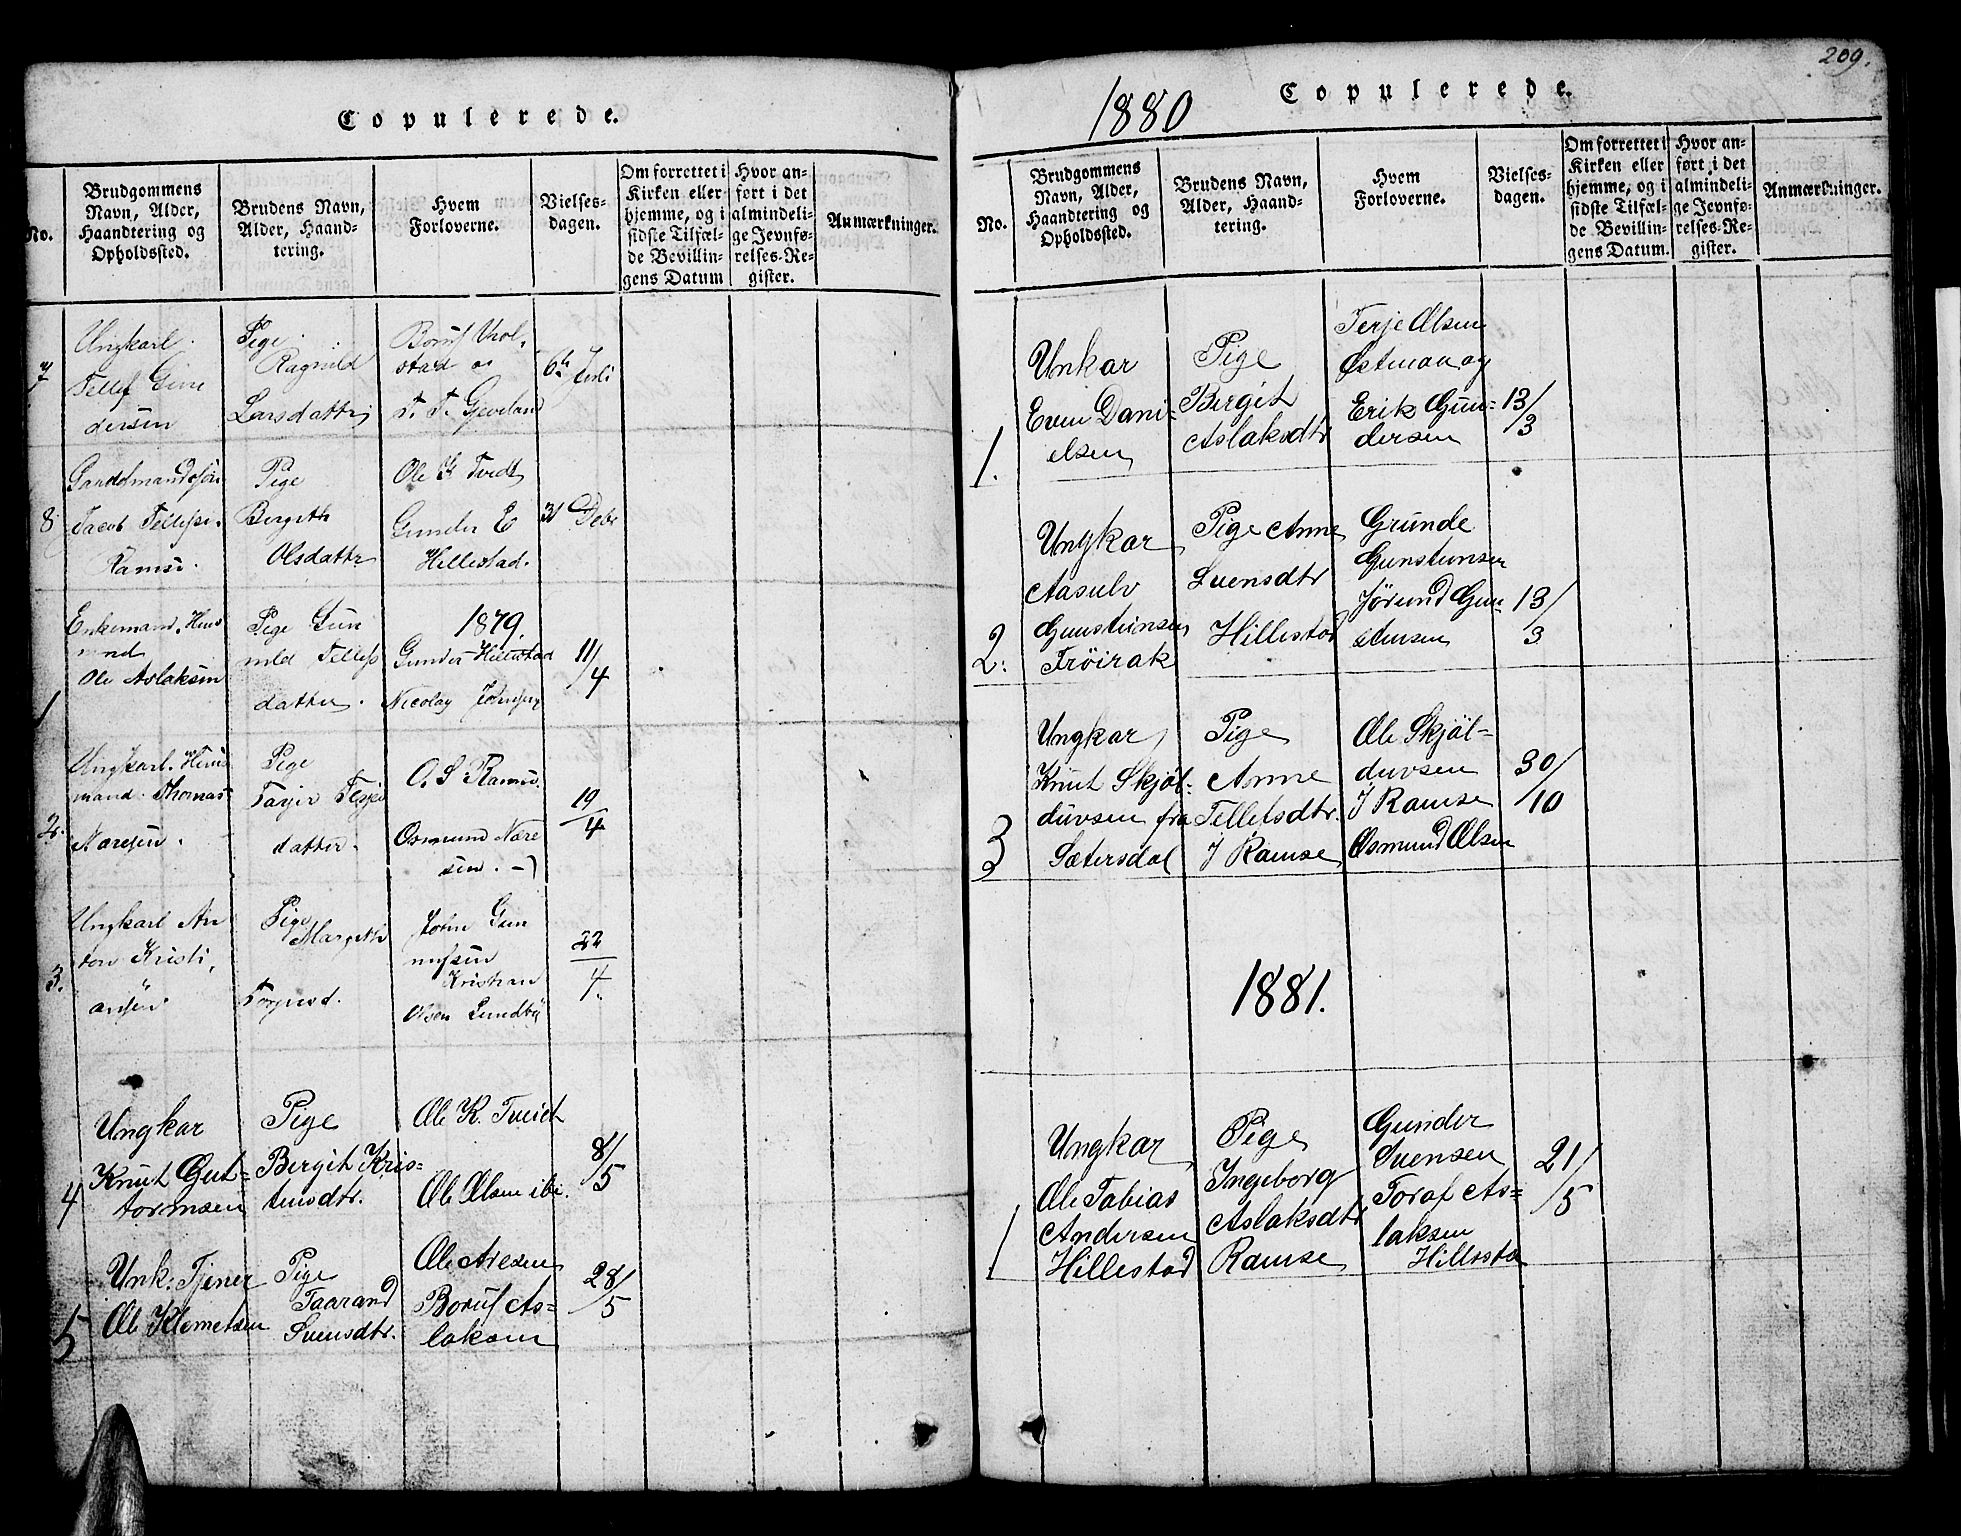 Copulerede.
No.
Brudgommens
Navn, Alder,
Haandtering og
Opholdssted.
Brudens Navn,
Alder, Haand-
tering.
Hvem
Forloverne.
Vielses-
dagen.
Om forrettet i
Kirken eller
hjemme, og i
sidste Tilfæl-
de Bevillin-
gens Datum
Hvor an-
ført i det
almindeli-
ge Jevnfø-
relses-Re-
gister.
Anmærkninger.
7
Ungkarl
Tellef Gun
dersen
Pige
Ragnild
Larsdatter
Boruf
stad og
T. T. Gjeveland
6te Juli
8
Gardsmandssøn
Jacob Tellefse.
Ramse.
Pige
Bergith
Olsdattr
Ole K Tvedt
Gunder E
Hillestad.
31 Debr
1879.
1
Enkemand. Hus
mnd
Ole Aslaksen
Pige Gun
nild Tellefs
datter.
Gunder Hillestad
Nicolay Johnsen
11/4
2.
Ungkarl. Huus
mand. Thomas
Naresen.
Pige
Tarjer Terjes
datter.
O. S. Ramse.
Osmund Nare
sen. -)
19/4
3.
Ungkarl An
ton Kristi,
ansen
Pige
Margith
Torjusd.
John Gun
nufsen
Kristian
Olsen Lundby
22/4.
4
Ungkar
Knut Gut-
tormsen
Pige
Bergit Kris-
tensdtr.
Ole K. Tveidt
Ole Olsen ibi.
8/5
5
Unk. Tjener
Ole Klemetsen
Pige
Taarand
Svensdtr.
Ole Aresen
Boruf As-
laksen
28/5
209.
1880
Copulerede.
No.
Brudgommens
Navn, Alder,
Haandtering og
Opholdssted.
Brudens Navn,
Alder, Haand-
tering.
Hvem
Forloverne.
Vielses-
dagen.
Om forrettet i
Kirken eller
hjemme, og i
sidste Tilfæl-
de Bevillin-
gens Datum.
Hvor an-
ført i det
almindeli-
ge Jevnfø-
relses-Re-
gister.
Anmærkninger.
1.
Unkar
Even Dani-
elsen
Pige
Bergit
Aslaksdtr
Terje Olsen
Østman og
Erik Gun-
dersen
13/3
2.
Ungkar
Aasulv
Gunstensen
Trøirak
Pige Anne
Svensdtr
Hillestad
Grunde
Gunstensen
Jørund Gun
stensen
13/3
3
Ungkar
Knut Skjøl-
duvsen fra
Sætersdal
Pige
Anne
Tellefsdtr.
I Ramse
Ole Skjøl-
duvsen
I Ramse
Osmund Olsen
30/10
1881.
1
Ungkar
Ole Tobias
Andersen
Hillestad
Pige
Ingeborg
Aslaksdtr
Ramse
Gunder
Svensen
Toraf As-
laksen
Hillesta
21/5